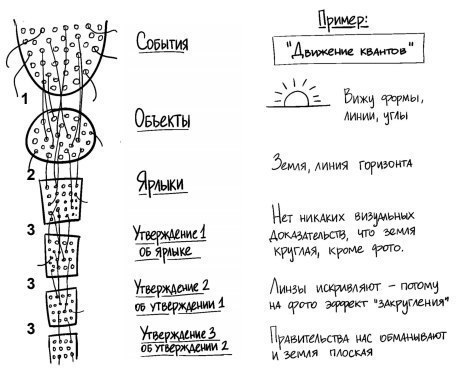 Пример:
События
"Движение квантов"
1
Вижу формы,
линии, углы
Объекты
2
Земля, линия горизонта
Ярлыки
3
Утверждение 1
об ярлыке
Нет никаких визуальных
доказательств, что земля
круглая, кроме фото.
3
Утверждение 2
об утверждении 1
Линзы искривляют – потому
на фото эффект "закругления"
3
Утверждение 3
об утверждении 2
Правительства нас обманывают
и земля плоская